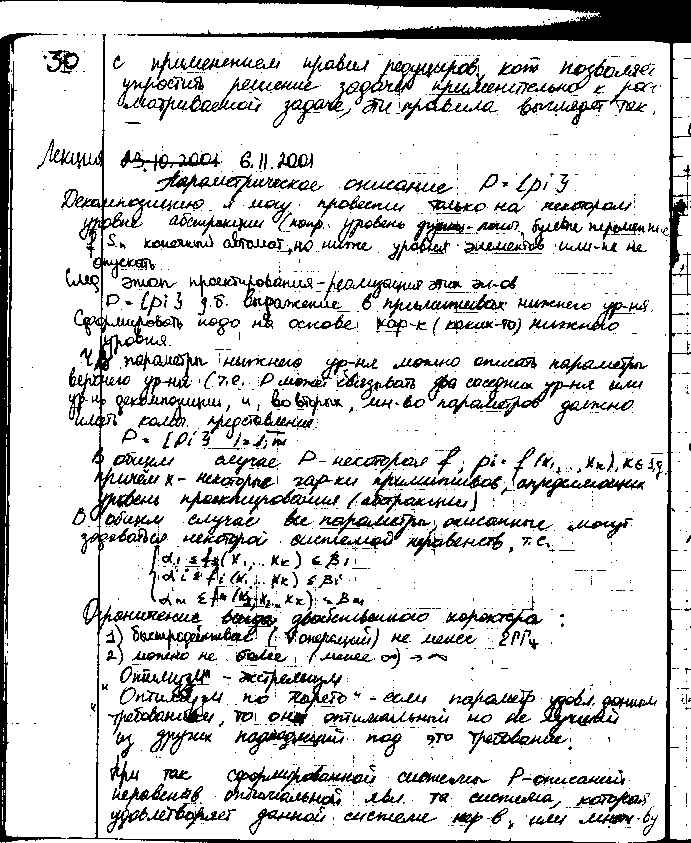 30 с применением правил редуциров, кот позволяет
упростить решение задачи применительно к рас
сматриваемой задаче, эти правила выглядят так.
Лекция 23.10.2001 6.11.2001
Параметрическое описание P = {pi}
Декомпозицию я могу провести только на некотором
уровне абстракции (напр. уровень булевы переменные
конечный автомат, но ниже уровня элементов или-не не
опускать
След этап проектирования - реализация этих эл-ов
P = {pi} д.б. выражение в примитивах нижнего ур-ня
Сформировать надо на основе хар-к (каких-то) нижнего
уровня.
параметры нижнего ур-ня можно описать параметры
верхнего ур-ня (т.е. P может связывать два соседних ур-ня или
ур-нь декомпозиции, и, во вторых, мн-во параметров должно
иметь колич представление
P = {Pi} i=1,m
В общем случае P - некоторая f, pi = f(x1,..., xk),
причём x - некоторые хар-ки примитивов, определяющих
уровень проектирования (абстракции)
В общем случае все параметры, описанные могут
задаваться некоторой системой неравенств, т.е.
α1 ≤ f1(x1,... xk) ≤ β1
αi ≤ fi(x1,... xk) ≤ βi
αm ≤ fm(x1, x2... xk) ≤ βm
Ограничение всегда двойственного характера:
1) быстродействие ( операций) не менее 2ГГц
2) можно не более (менее ∞) → ∞
Оптимум - экстремум
"Оптимум по Парето" - если параметр удовл. данным
требованиям, то он оптимальный но не лучший
из других подходящий под это требование.
При так сформированной системы P-описаний
неравенств оптимальной явл. та система, которая
удовлетворяет данной системе нер-в, или множ-ву